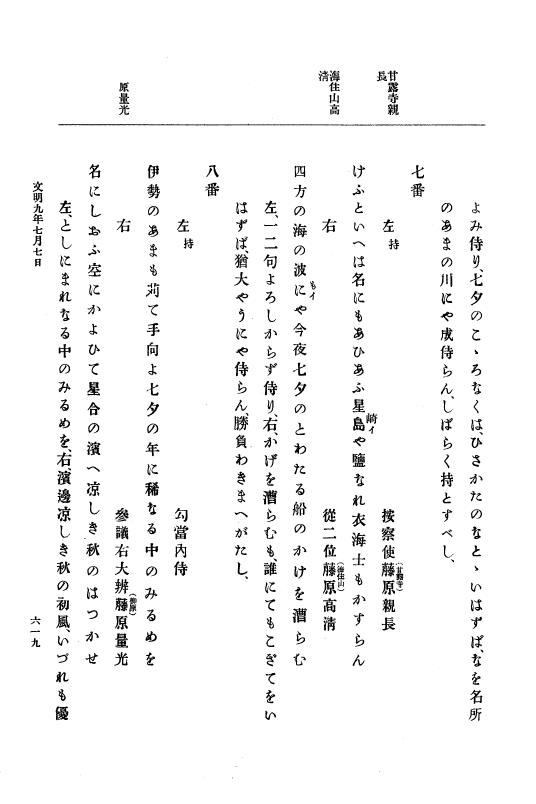 甘露寺親
長
海住山高
清
原量光
よみ侍り、七夕のこゝろなくは、ひさかたのなとゝいはずば、なを名所
のあまの川にや成侍らん、しばらく持とすべし、
七番
左持
按察使藤原親長
(甘露寺)
けふといへは名にもあひあふ星島や鹽なれ衣海士もかすらん
崎イ
右
從二位藤原高淸
(海住山)
四方の海の波にや今夜七夕のとわたる船のかけを漕らむ
もイ
左、一二句よろしからず侍り、右、かげを漕らむも、誰にてもこぎてをい
はずば、猶大やうにや侍らん、勝負わきまへがたし、
八番
左持
勾當內侍
伊勢のあまも苅て手向よ七夕の年に稀なる中のみるめを
右
參議右大辨藤原量光
(柳原)
名にしおふ空にかよひて星合の濱へ凉しき秋のはつかせ
左、としにまれなる中のみるめを、右、濱邊凉しき秋の初風、いづれも優
文明九年七月七日
六一九